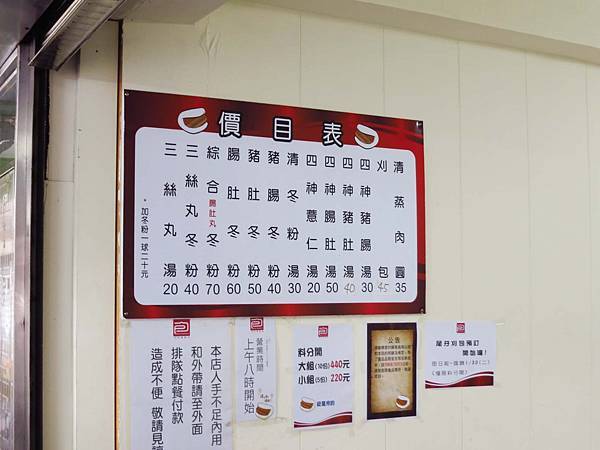 價目表
清蒸肉圓 35
刈包 45
四神豬腸湯 30
四神豬肚湯 40
四神腸肚湯 50
四神薏仁湯 20
清冬粉湯 30
豬腸冬粉 40
豬肚冬粉 50
腸肚冬粉 60
綜合腸肚丸冬粉 70
三絲丸冬粉 40
三絲丸湯 20
*加冬粉一球二十元
本店人手不足內用
和外帶請至外面
排隊點餐付款
造成不便 敬請見諒
營業時間
上午八時開始
料分開
大組(10份)440元
小組(5份)220元
公告
尾牙刈包預訂
開始囉!